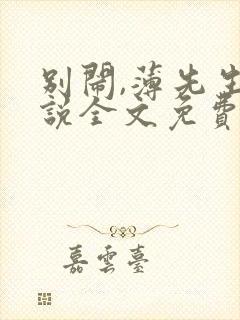 別鬧,薄先生
說全文免費
嘉雲臺